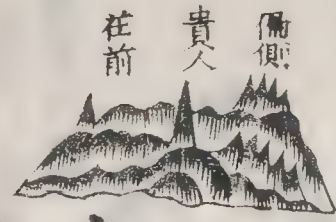 側
貴人
在前